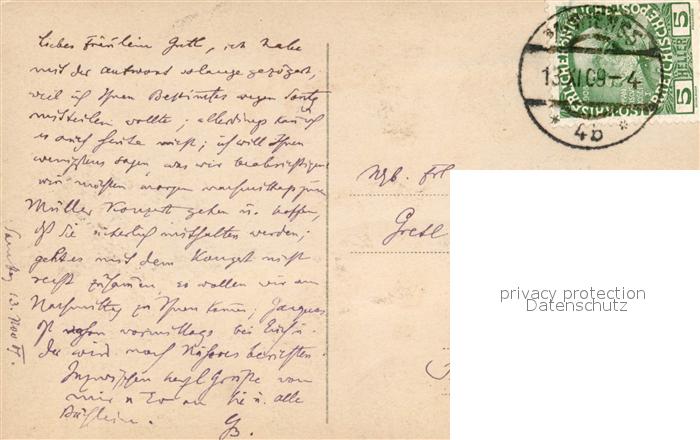 Liebes Fräulein Gretl, ich habe
mit der Antwort so lange gezögert,
weil ich Ihnen Bestimmtes wegen
mitteilen wollte; allerdings kann ich
es auch heute nicht; ich will Ihnen
wenigstens sagen, was wir beabsichtigen
wir möchten morgen nachmittag zum
Müller Konzert gehen u. hoffen,
daß Sie sicherlich mithalten werden;
geht es mit dem Konzert nicht
recht zusammen, so wollen wir am
Nachmittag zu Ihnen kommen; Jacques
ist schon vormittags bei Euch u.
der wird noch Näheres berichten.
Inzwischen herzl. Grüße von
mir an Sie u. alle
Samstag 13. Nov.
Frl.
Gretl
13.XI.09-4
* 4b *
5 HELLER 5
privacy protection
Datenschutz